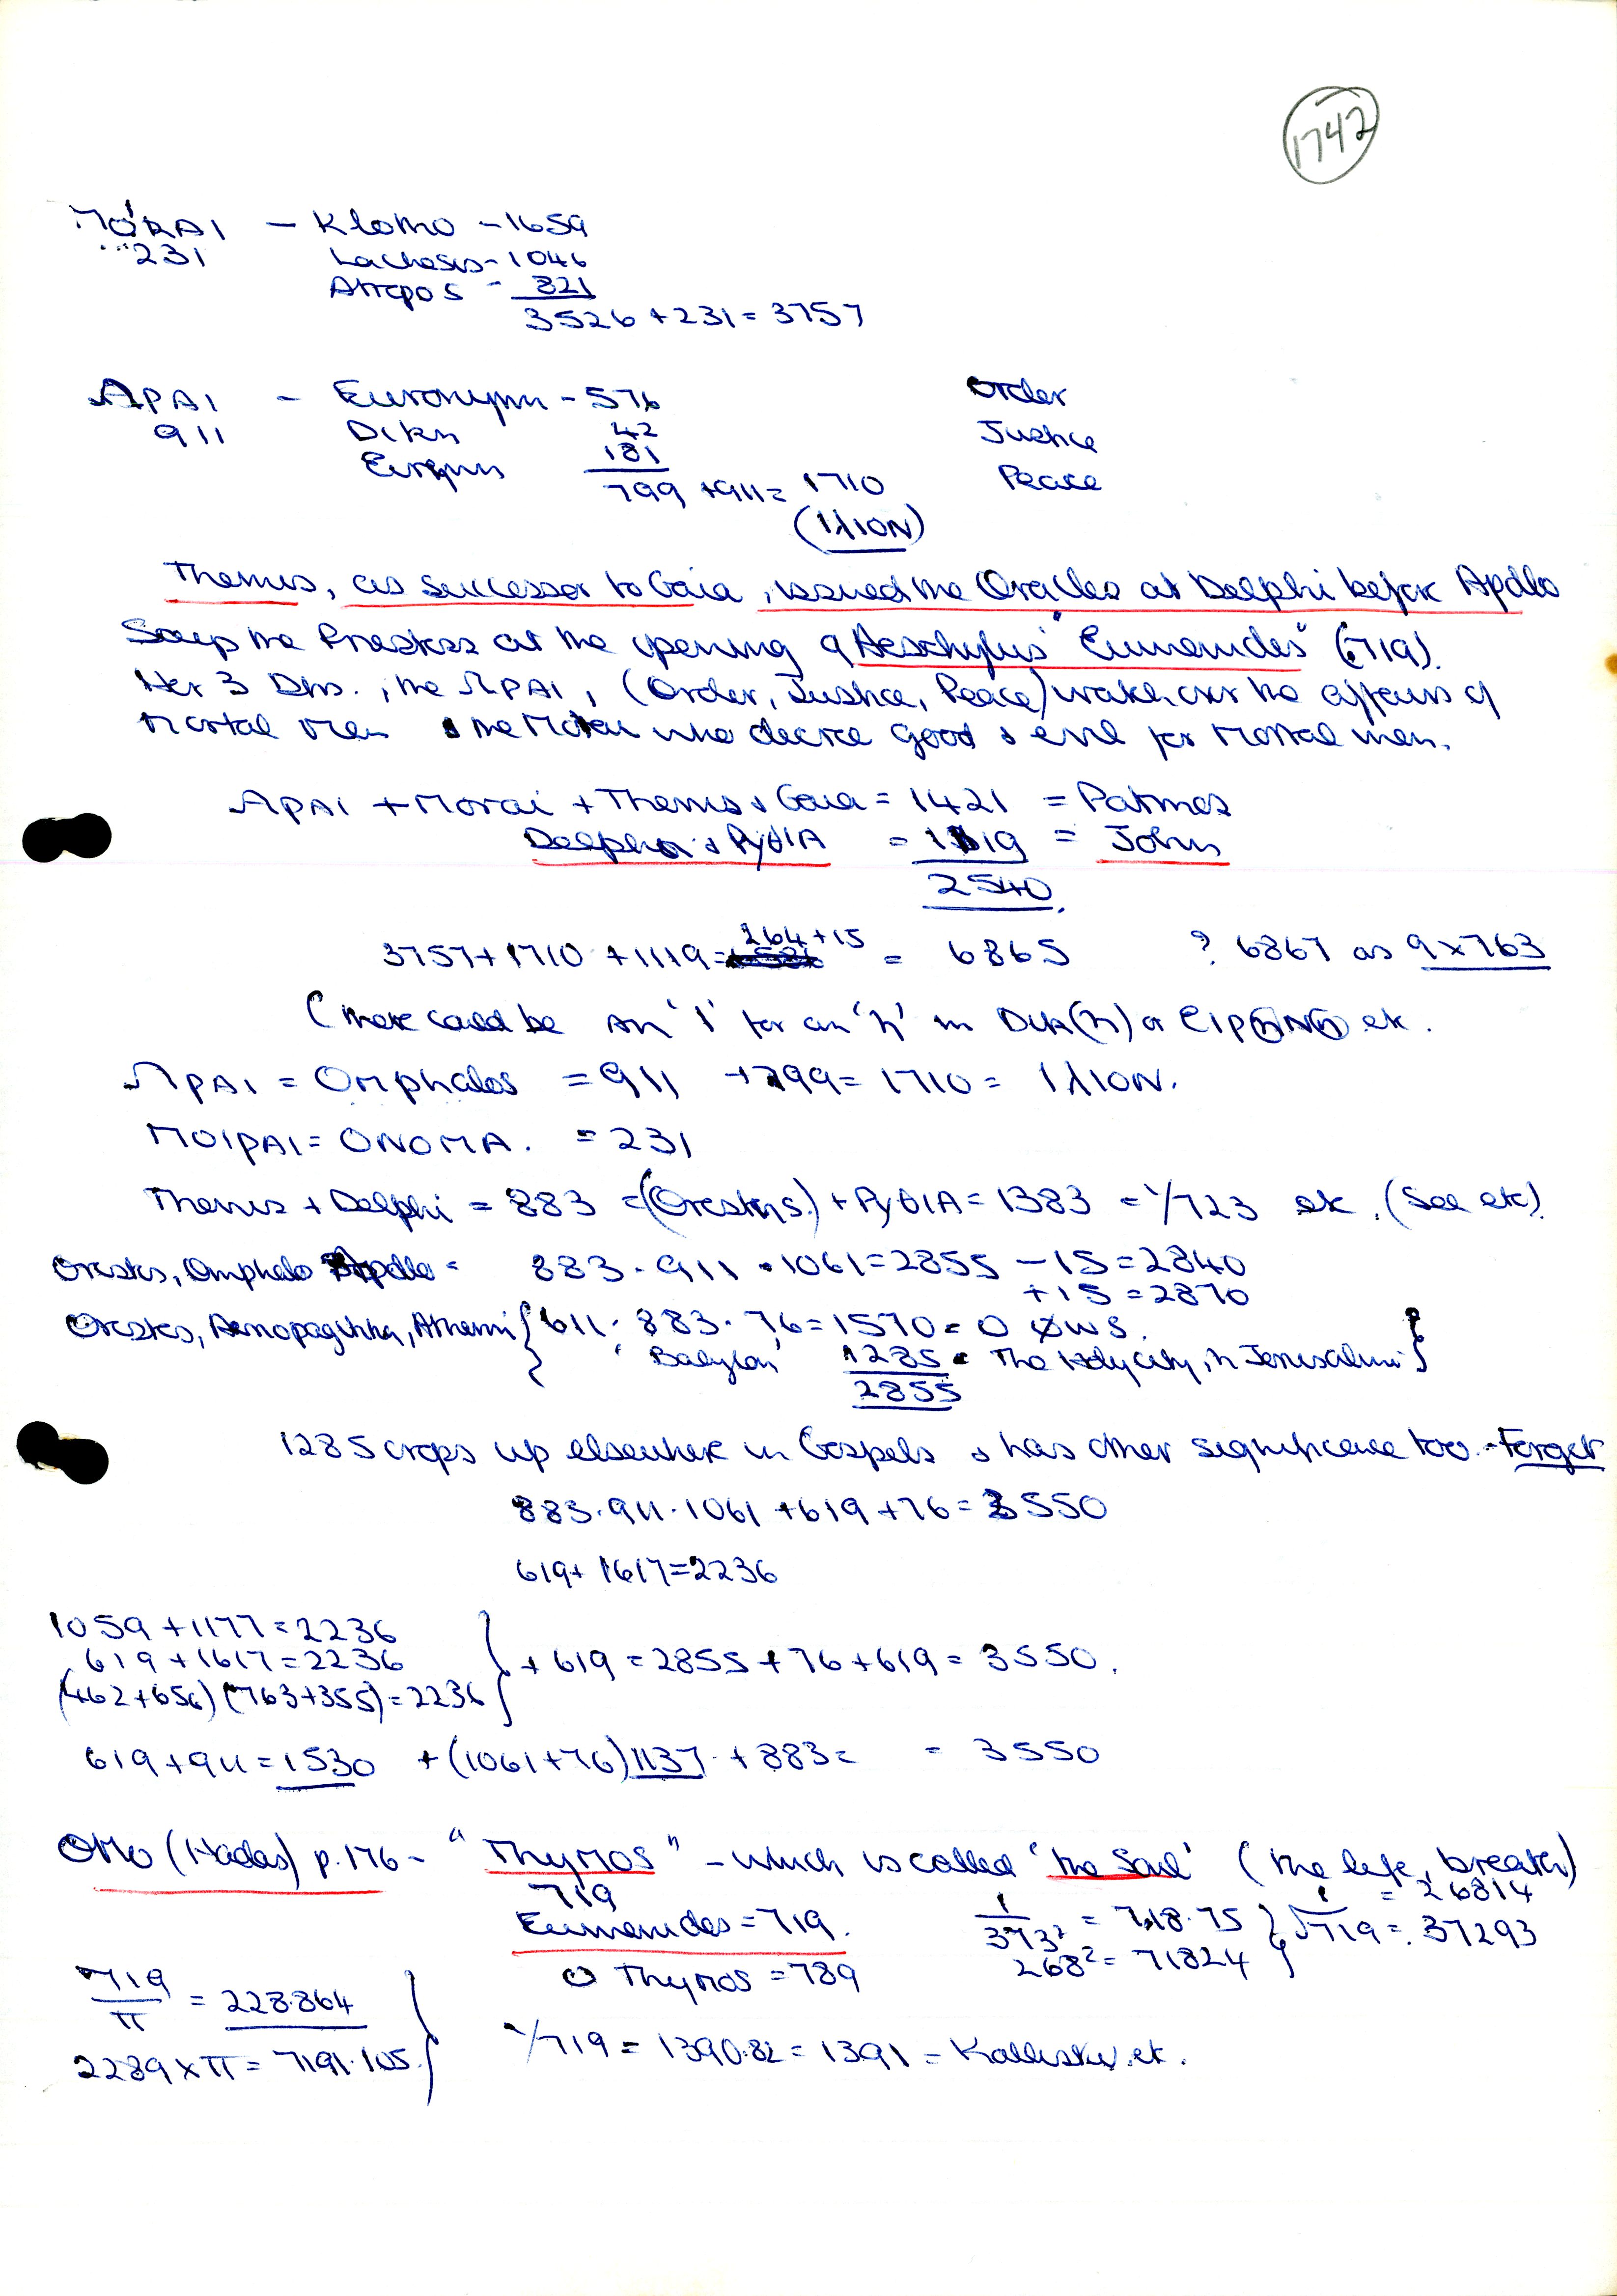 1742
MOIRAI — Klotho - 1659
231 Lachesis - 1046
Atropos - 821
3526 + 231 = 3757
ΩPAI - Eunomih - 576 Order
911 Dikh 42 Justice
Eirhnh 181 Peace
799 + 911 = 1710
(IλION)
Themis, as successor to Gaia, issued the Oracles at Delphi before Apollo
Says the Priestess at the opening of Aeschylus' "Eumenides" (719).
Her 3 Dtrs., the ΩPAI, (Order, Justice, Peace) watch over the affairs of
mortal men & the Moirai who decree good & evil for mortal men.
ΩPAI + Moirai + Themis & Gaia = 1421 = Patmos
Delphoi & PyθIA = 1119 = John
2540.
3757 + 1710 + 1119 = 264 + 15 = 6865 ? 6867 as 9 x 763
(there could be an 'I' for an 'h' in Dik(h) or EIP(h)N(h) etc.
ΩPAI = Omphalos = 911 + 799 = 1710 = IλION.
MOIPAI = ONOMA. = 231
Themis + Delphi = 883 = (Oresths.) + PyθIA = 1383 = 1/723 etc. (See etc).
Orestes, Omphalo Apollo = 883 . 911 . 1061 = 2855 - 15 = 2840
+ 15 = 2870
Orestes, Athenai { 611 . 883 . 76 = 1570 = O ΦWS.
'Babylon' 1285 = The Holy City, h Jerusalem }
2855
1285 crops up elsewhere in Gospels & has other significance too. - Forget
883 . 911 . 1061 + 619 + 76 = 3550
619 + 1617 = 2236
1059 + 1177 = 2236
619 + 1617 = 2236 } + 619 = 2855 + 76 + 619 = 3550.
(462 + 656) (763 + 355) = 2236
619 + 911 = 1530 + (1061 + 76) 1137 + 883 = = 3550
Otto (Hadas) p. 176 - "Thymos" - which is called 'the Soul' (the life, breath)
719 1/ = 26814
Eumenides = 719. 1/373² = 718.75 } √719 = . 37293
O Thymos = 789 268² = 71824
719/π = 228.864
2289 x π = 7191.105. } 1/719 = 1390.82 = 1391 = Kallisth etc.